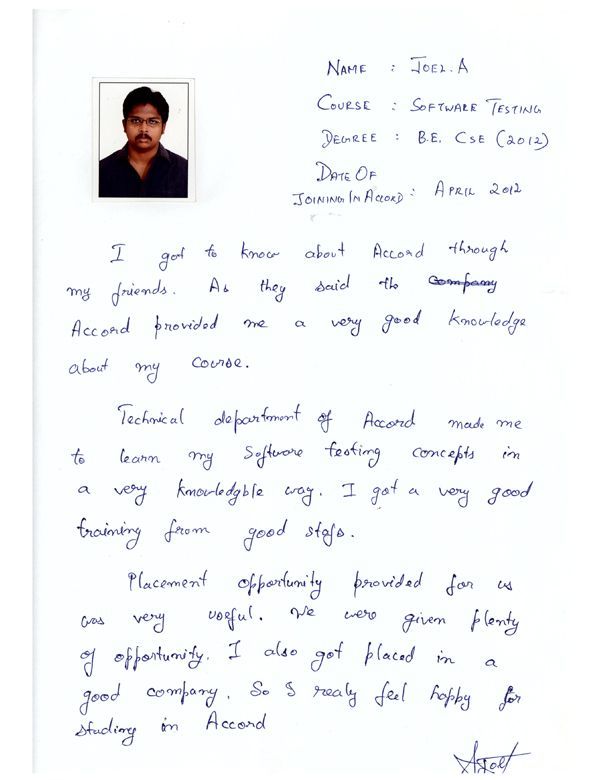 NAME : JOEL.A
COURSE : SOFTWARE TESTING
DEGREE : B.E. CSE (2012)
DATE OF
JOINING IN ACCORD : APRIL 2012
I got to know about Accord through
my friends. As they said the company
Accord provided me a very good knowledge
about my course.
Technical department of Accord made me
to learn my Software testing concepts in
a very knowledgble way. I got a very good
training from good stafs.
Placement opportunity provided for us
was very useful. We were given plenty
of opportunity. I also got placed in a
good company. So I realy feel happy for
studing in Accord